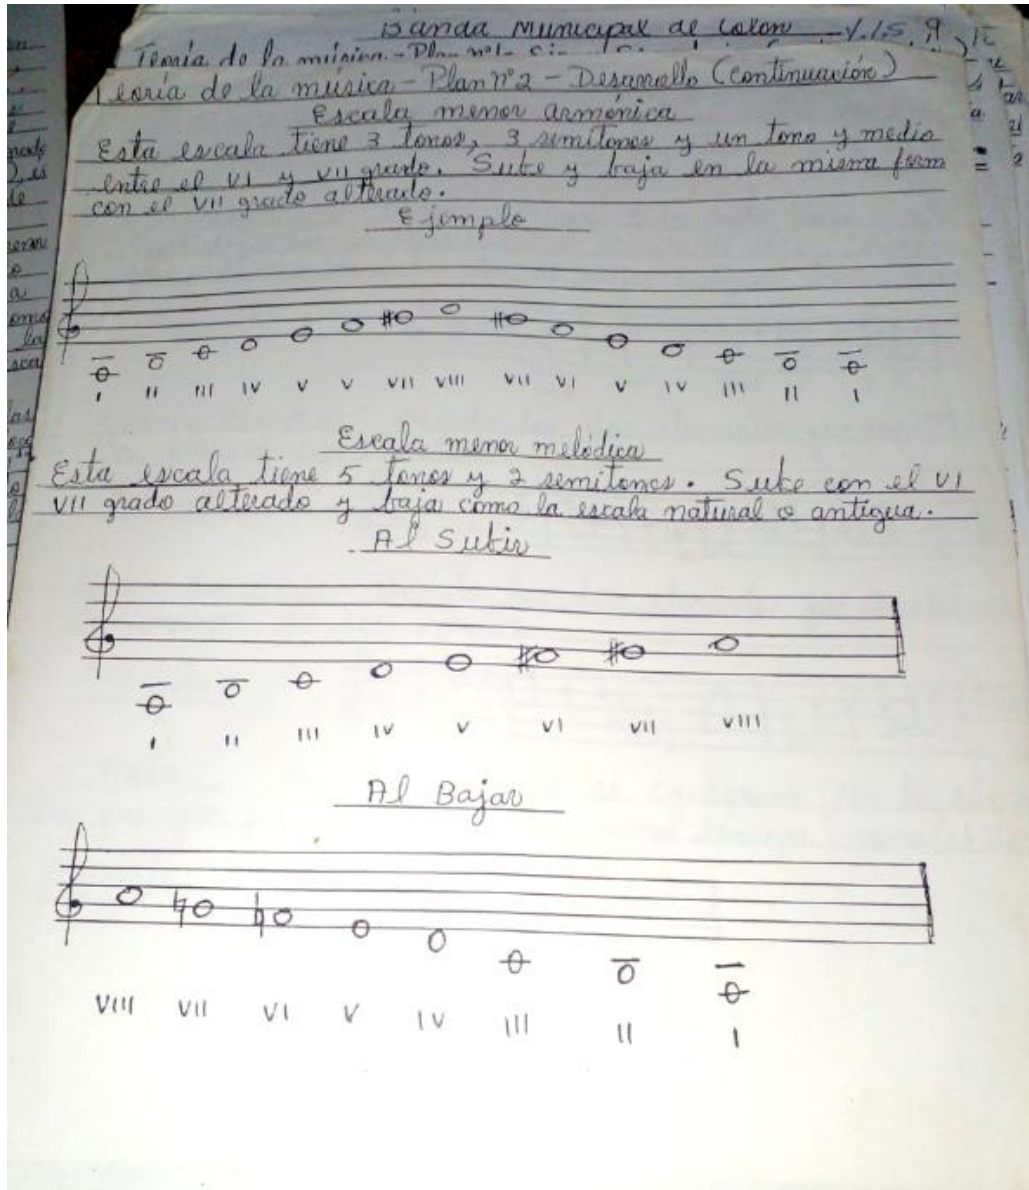 Banda Municipal de Colon
Teoría de la música - Plan
Teoría de la música - Plan nº2 - Desarrollo (continuación)
Escala menor armónica
Esta escala tiene 3 tonos, 3 semitonos y un tono y medio
entre el VI y VII grado. Sube y baja en la misma form
con el VII grado alterado.
Ejemplo
I II III IV V V VII VIII VII VI V IV III II I
Escala menor melódica
Esta escala tiene 5 tonos y 2 semitonos. Sube con el VI
VII grado alterado y baja como la escala natural o antigua.
Al Subir
I II III IV V VI VII VIII
Al Bajar
VIII VII VI V IV III II I